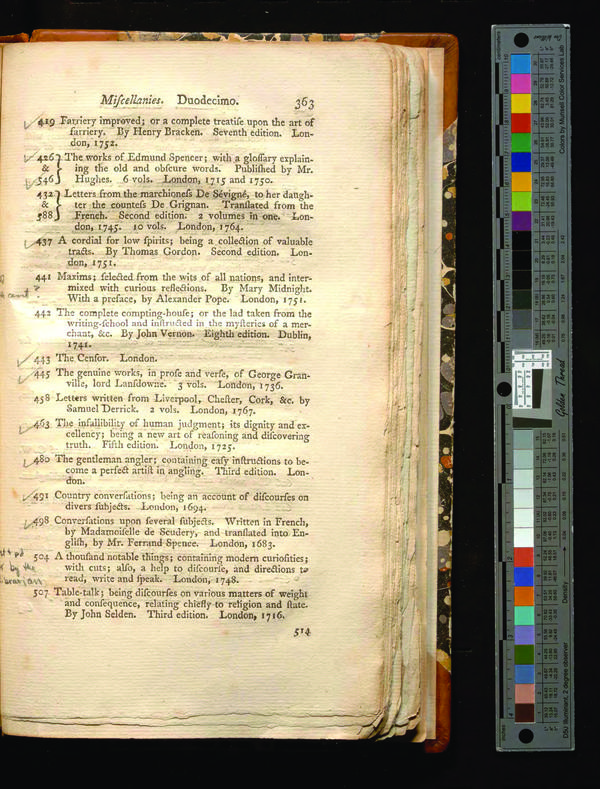 Miſcellanies. Duodecimo. 363
419 Farriery improved; or a complete treatiſe upon the art of
farriery. By Henry Bracken. Seventh edition. Lon-
don, 1752.
426 } The works of Edmund Spencer; with a gloſſary explain-
& } ing the old and obſcure words. Publiſhed by Mr.
546 } Hughes. 6 vols. London, 1715 and 1750.
432 } Letters from the marchioneſs De Sévigné, to her daugh-
& } ter the counteſs De Grignan. Tranſlated from the
588 } French. Second edition. 2 volumes in one. Lon-
don, 1745. 10 vols. London, 1764.
437 A cordial for low ſpirits; being a collection of valuable
tracts. By Thomas Gordon. Second edition. Lon-
don, 1751.
441 Maxims; ſelected from the wits of all nations, and inter-
mixed with curious reflections. By Mary Midnight.
With a preface, by Alexander Pope. London, 1751.
442 The complete compting-houſe; or the lad taken from the
writing-ſchool and inſtructed in the myſteries of a mer-
chant, &c. By John Vernon. Eighth edition. Dublin,
1741.
443 The Cenſor. London.
445 The genuine works, in proſe and verſe, of George Gran-
ville, lord Lanſdowne. 3 vols. London, 1736.
458 Letters written from Liverpool, Cheſter, Cork, &c. by
Samuel Derrick. 2 vols. London, 1767.
463 The infallibility of human judgment; its dignity and ex-
cellency; being a new art of reaſoning and diſcovering
truth. Fifth edition. London, 1725.
480 The gentleman angler; containing eaſy inſtructions to be-
come a perfect artiſt in angling. Third edition. Lon-
don.
491 Country converſations; being an account of diſcourſes on
divers ſubjects. London, 1694.
498 Converſations upon ſeveral ſubjects. Written in French,
by Madameiſelle de Scudery, and tranſlated into En-
gliſh, by Mr. Ferrand Spence. London, 1683.
504 A thouſand notable things; containing modern curioſities;
with cuts; alſo, a help to diſcourſe, and directions to
read, write and ſpeak. London, 1748.
507 Table-talk; being diſcourſes on various matters of weight
and conſequence, relating chiefly to religion and ſtate.
By John Selden. Third edition. London, 1716.
514
by the
Colors by Munsell Color Services Lab
Golden Thread
Density
D50 Illuminant, 2 degree observer